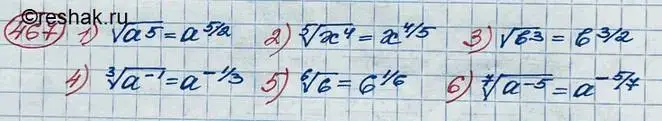 ©reshak.ru
467 1) √a5 = a^5/2 2) ⁵√x⁴ = x^4/5 3) √b3 = b^3/2
4) ³√a⁻¹ = a^-1/3 5) ⁶√6 = 6^1/6 6) ⁷√a⁻⁵ = a^-5/7